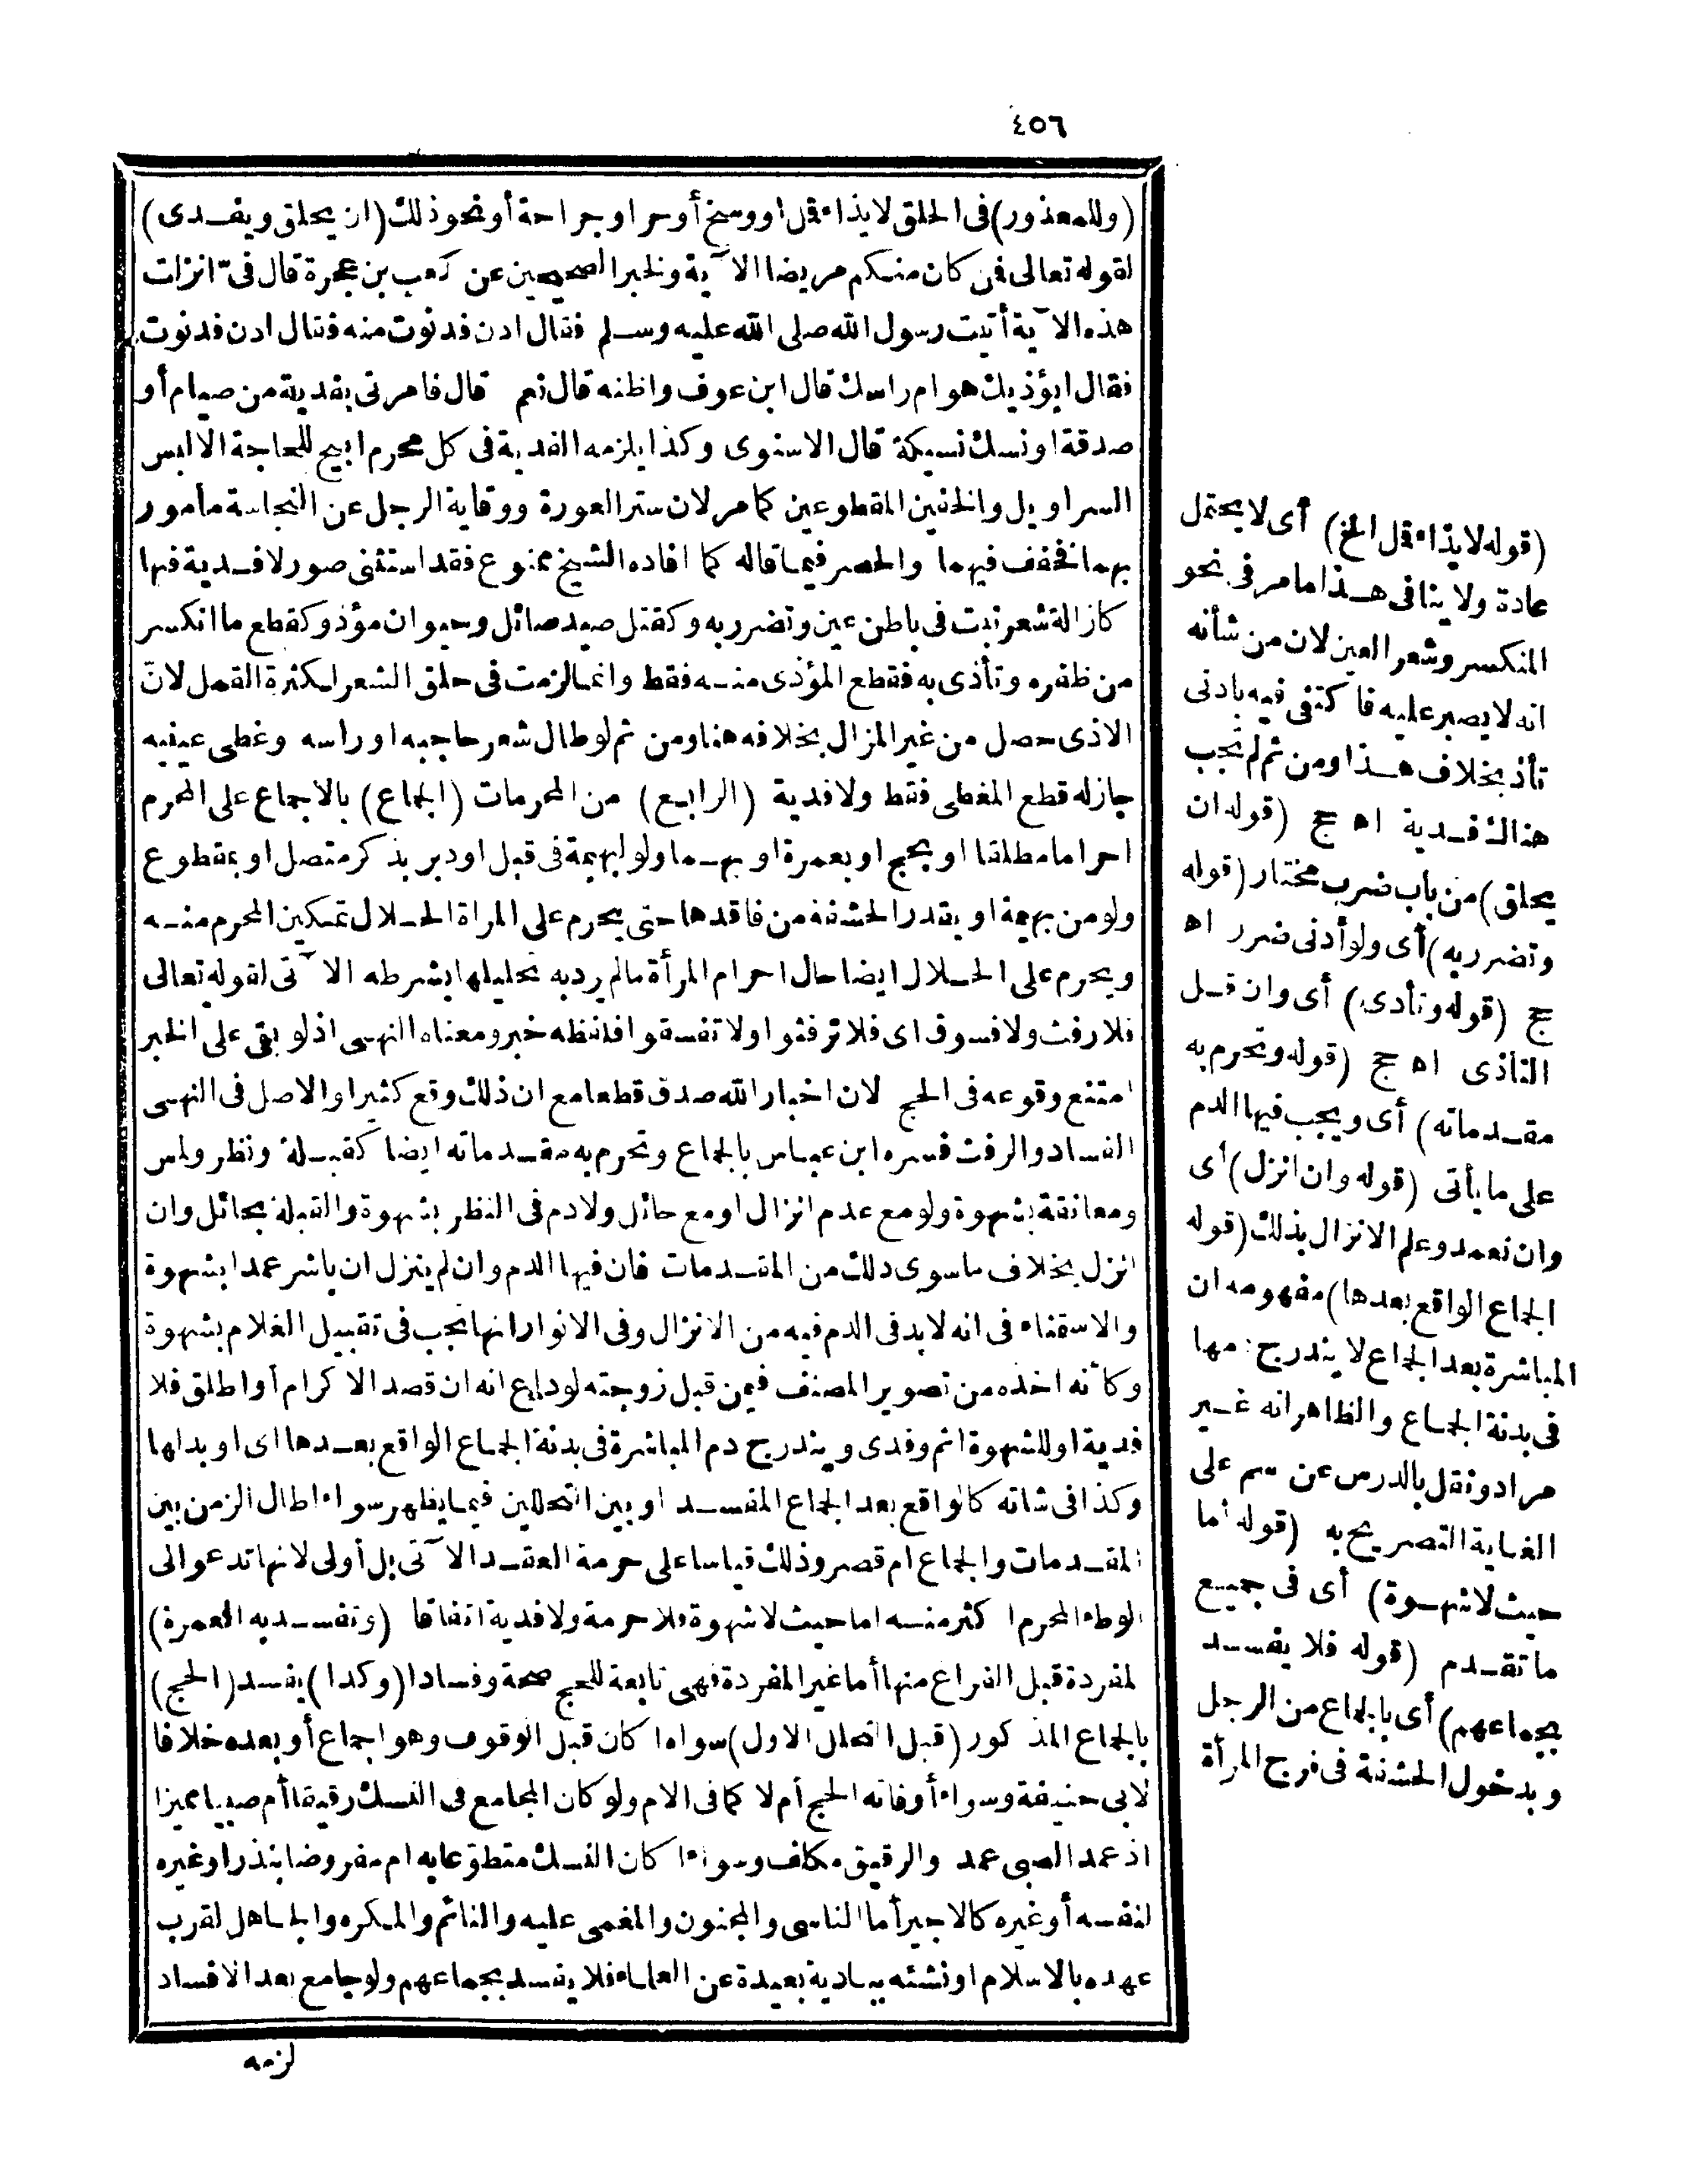 ٤٥٦
(وللمعذور) فى الحلق لايذاء قمل او وسخ أو حر او جراحة أو نحو ذلك (ان يحلق ويفدى)
لقوله تعالى فمن كان منكم مريضا الآية ولخبر الصحيحين عن كعب بن عجرة قال فىّ انزلت
هذه الآية أتيت رسول الله صلى الله عليه وسلم فقال ادن فدنوت منه فقال ادن فدنوت
فقال ايؤذيك هوام راسك قال ابن عوف واظنه قال نعم قال فامرنى بفدية من صيام أو
صدقة او نسك نسيكة قال الاسنوى وكذا يلزمه الفدية فى كل محرم ابيح للحاجة الا لبس
السراويل والخفين المقطوعين كما مر لان ستر العورة ووقاية الرجل عن النجاسة مأمور
بهما فخفف فيهما والحصر فيما قاله كما افاده الشيخ ممنوع فقد استثنى صور لا فدية فيها
كازالة شعر نبت فى باطن عين وتضرر به وكقتل صيد صائل وحيوان مؤذ وكقطع ما انكسر
من ظفره وتأذى به فقطع المؤذى منه فقط وانما لزمت فى حلق الشعر لكثرة القمل لانّ
الاذى حصل من غير المزال بخلافه هنا ومن ثم لو طال شعر حاجبه او راسه وغطى عينيه
جاز له قطع المغطى فقط ولا فدية (الرابع) من المحرمات (الجماع) بالاجماع على المحرم
احراما مطلقا او بحج او بعمرة او بهما ولو لبهيمة فى قبل او دبر بذكر متصل او بمقطوع
ولو من بهيمة او بقدر الحشفة من فاقدها حتى يحرم على المراة الحلال تمكين المحرم منه
ويحرم على الحلال ايضا حال احرام المرأة مالم يرد به تحليلها بشرطه الآتى لقوله تعالى
فلا رفث ولا فسوق اى فلا ترفثوا ولا تفسقوا فلفظه خبر ومعناه النهى اذ لو بقى على الخبر
امتنع وقوعه فى الحج لان اخبار الله صدق قطعا مع ان ذلك وقع كثيرا والاصل فى النهى
الفساد والرفث فسره ابن عباس بالجماع وتحرم به مقدماته ايضا كقبلة ونظر ولمس
ومعانقة بشهوة ولو مع عدم انزال او مع حائل ولا دم فى النظر بشهوة والقبلة بحائل وان
انزل بخلاف ما سوى ذلك من المقدمات فان فيها الدم وان لم ينزل ان باشر عمدا بشهوة
والاستمناء فى انه لا بد فى الدم فيه من الانزال وفى الانوار انها تجب فى تقبيل الغلام بشهوة
وكأنه اخذه من تصوير المصنف فيمن قبل زوجته لوداع انه ان قصد الاكرام أو اطلق فلا
فدية او للشهوة اثم وفدى ويندرج دم المباشرة فى بدنة الجماع الواقع بعدها اى او بدلها
وكذا فى شاته كالواقع بعد الجماع المفسد او بين التحللين فيما يظهر سواء اطال الزمن بين
المقدمات والجماع ام قصر وذلك قياسا على حرمة العقد الآتى بل أولى لانها تدعو الى
الوطء المحرم اكثر منه اما حيث لا شهوة فلا حرمة ولا فدية اتفاقا (وتفسد به العمرة)
لمفردة قبل الفراغ منها أما غير المفردة فهى تابعة للحج صحة وفسادا (وكذا) يفسد (الحج)
بالجماع المذكور (قبل التحلل الاول) سواء ا كان قبل الوقوف وهو اجماع أو بعده خلافا
لابى حنيفة وسواء أوفاته الحج أم لا كما فى الام ولو كان المجامع فى النسك رقيقا أم صبيا مميزا
اذ عمد الصبى عمد والرقيق مكلف وسواء ا كان النسك متطوّعا به ام مفروضا بنذر او غيره
لنفسه أو غيره كالاجير أما الناسى والمجنون والمغمى عليه والنائم والمكره والجاهل لقرب
عهده بالاسلام او نشئه ببادية بعيدة عن العلماء فلا يفسد بجماعهم ولو جامع بعد الافساد
لزمه
(قوله لايذاء قمل الخ) أى لا يحتمل
عادة ولا ينافى هذا ما مر فى نحو
المنكسر وشعر العين لان من شأنه
انه لا يصبر عليه فاكتفى فيه بادنى
تأذ بخلاف هذا ومن ثم لم تجب
هناك فدية اه حج (قوله ان
يحلق) من باب ضرب مختار (قوله
وتضرر به) أى ولو أدنى ضرر اه
حج (قوله وتأذى) أى وان قل
التأذى اه حج (قوله وتحرم به
مقدماته) أى ويجب فيها الدم
على ما يأتى (قوله وان انزل) أى
وان تعمد وعلم الانزال بذلك (قوله
الجماع الواقع بعدها) مفهومه ان
المباشرة بعد الجماع لا يندرج دمها
فى بدنة الجماع والظاهر انه غير
مراد ونقل بالدرس عن سم على
الغاية التصريح به (قوله أما
حيث لا شهوة) أى فى جميع
ما تقدم (قوله فلا يفسد
بجماعهم) أى بالجماع من الرجل
وبدخول الحشفة فى فرج المرأة